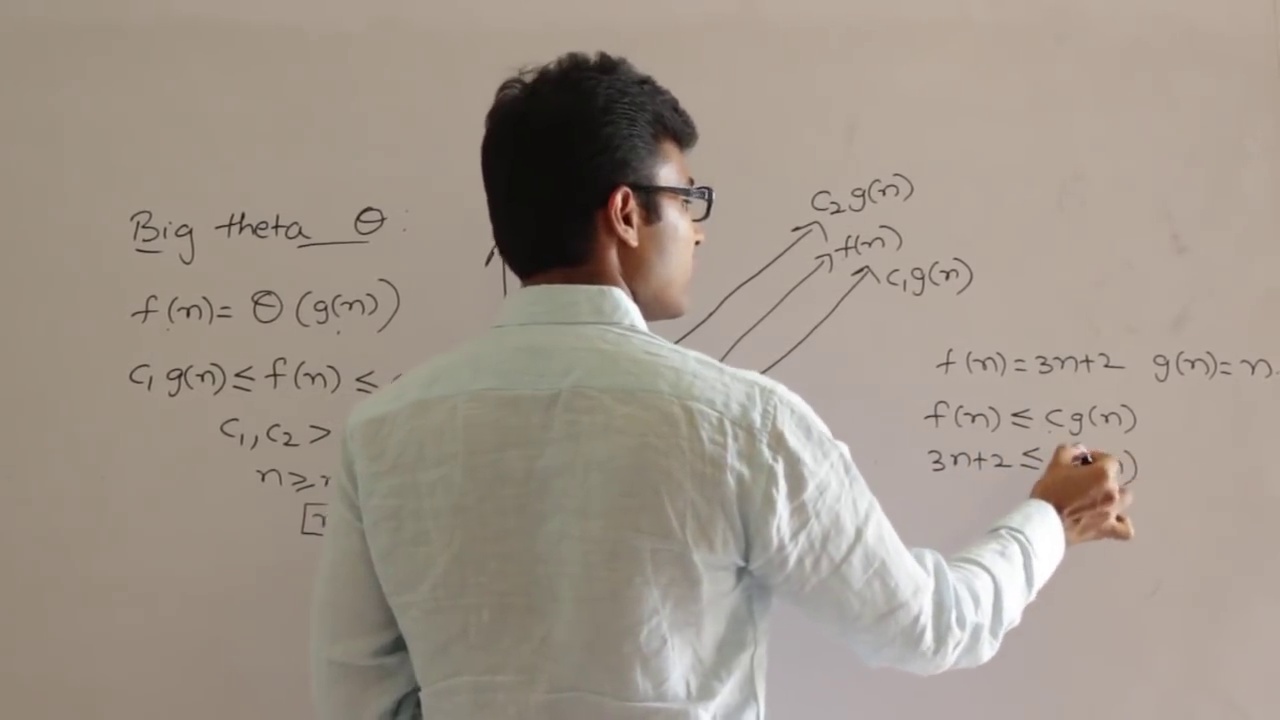 Big theta Θ:
f(n) = Θ(g(n))
c₁ g(n) ≤ f(n) ≤
c₁, c₂ >
n ≥
[
c₂ g(n)
f(n)
c₁ g(n)
f(n) = 3n+2 g(n) = n.
f(n) ≤ c g(n)
3n+2 ≤